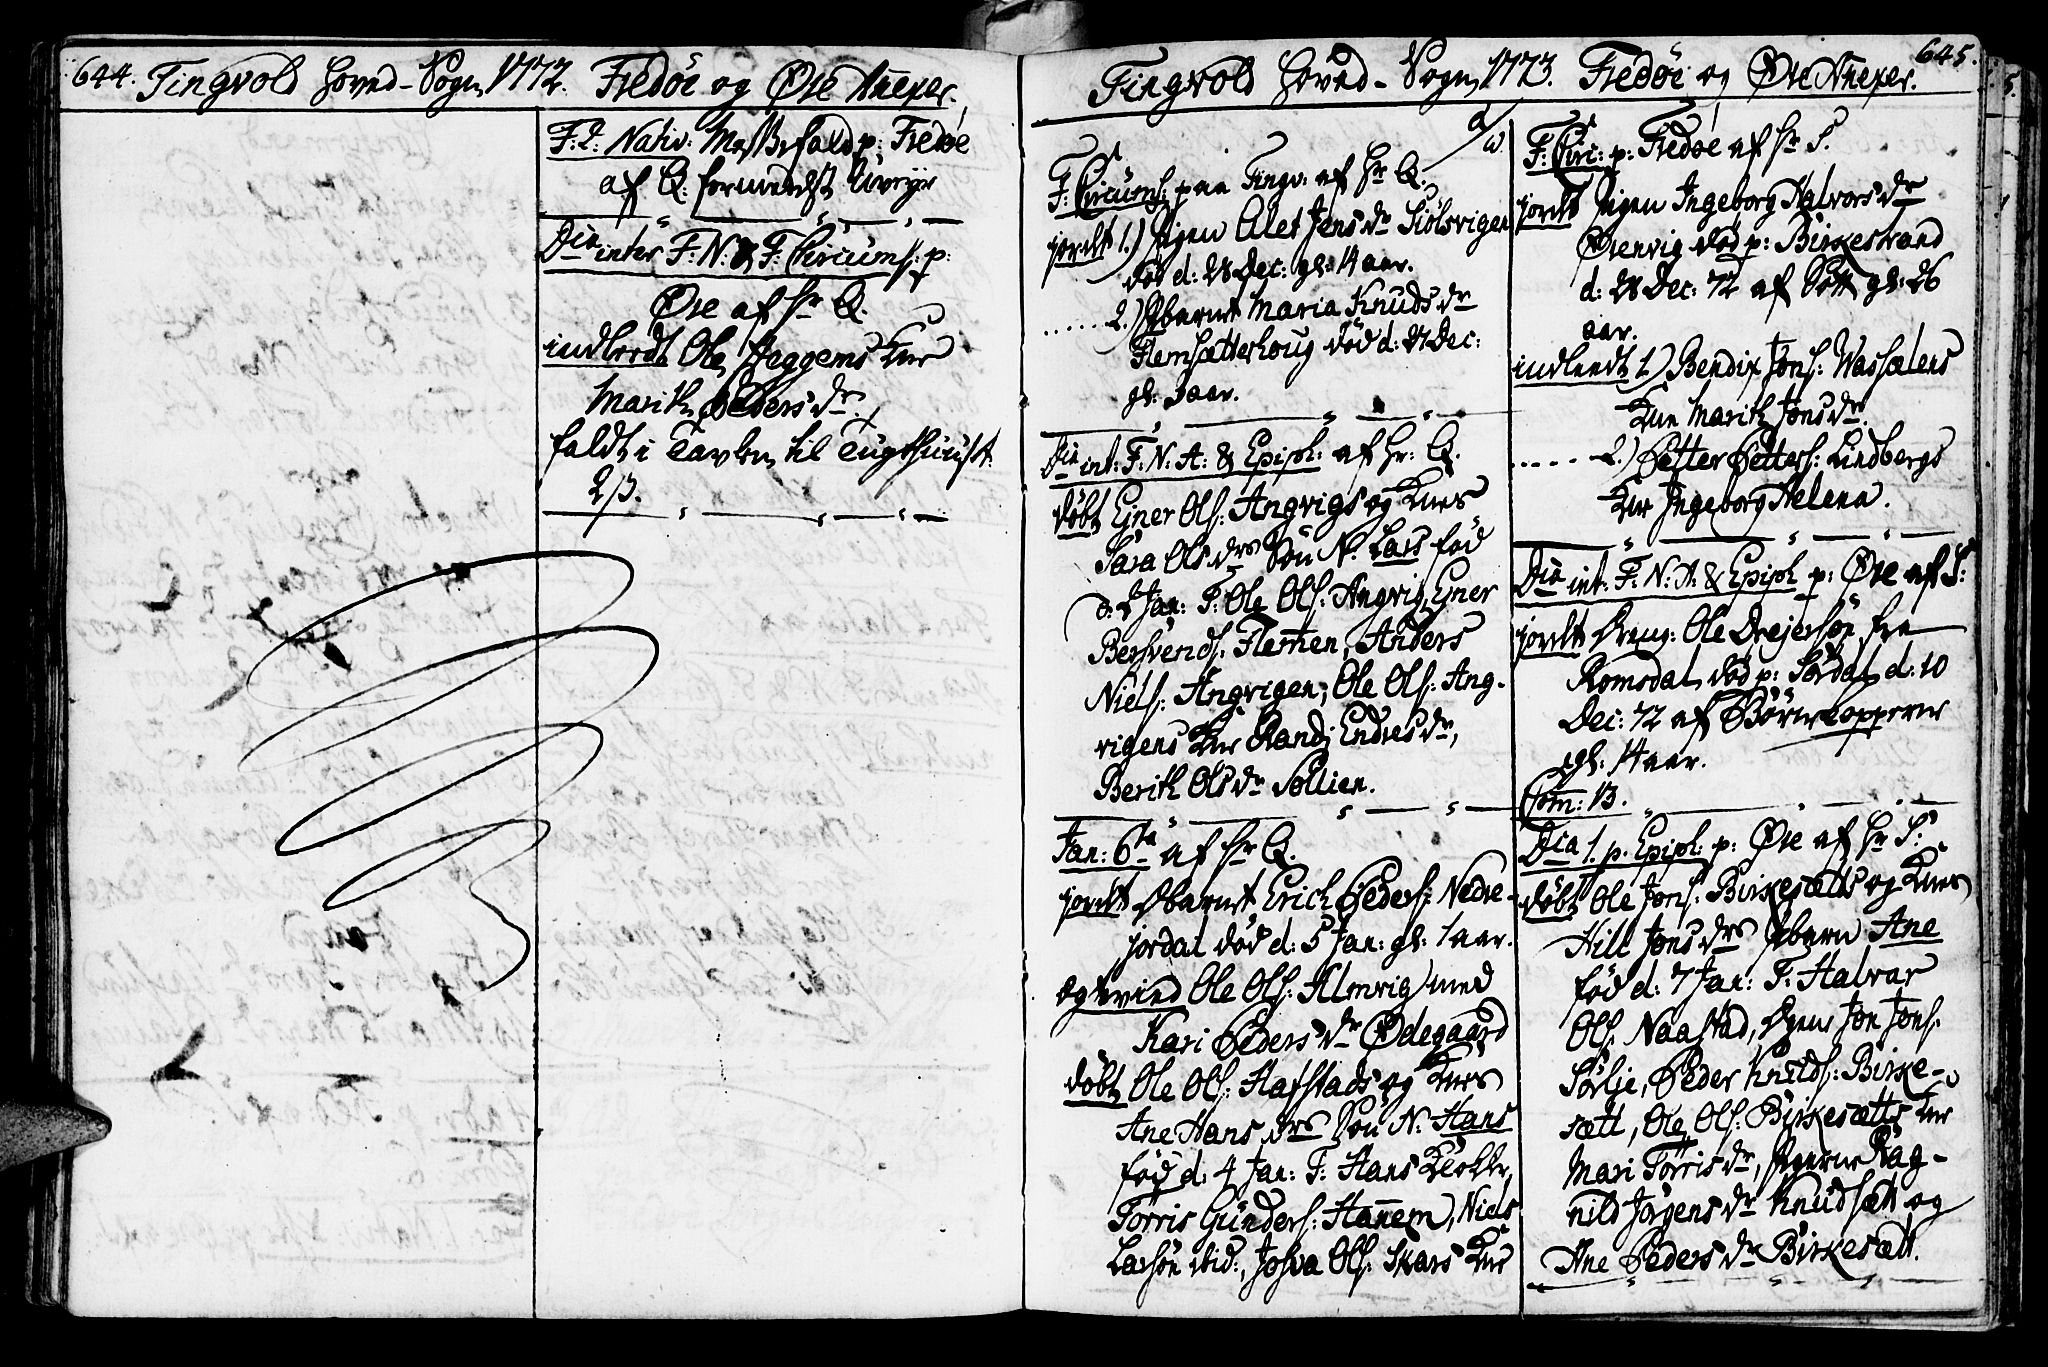 644. Tingvold Hoved-Sogn 1772. Fredøe og Øre Anexer.
F: 2. Nativ: Messefald p: Fredøe
af Q: formedelst Uveyr
Dca inter F: N: & F: Circums: p:
Øre af Hr Q.
indleedt Ole Heggems Kne
Marith Peders dr.
faldt i Tavlen til Tugthuuset
2 β.
645.
Tingvold Hoved-Sogn 1773. Fredøe og Øre Anexer.
F: Circums: paa Tingv: af Hr Q:
jordet 1.) Pigen Alet Jens dr Siølsvigen
død d: 28 Dec: gl: 14 aar.
..... 2.) Pbarnet Maria Knuds dr
Flemsætterhoug død d: 27 Dec:
gl: 3 aar.
Dca int: F: N: A: & Epiph: af Hr: Q.
døbt Ejner Ols: Angvigs og Knes
Sara Ols drs Søn N. Lars fød
d: 2 Jan: F: Ole Ols: Angvig, Ejner
Bersvends: Flemen, Anders
Niels: Angvigen, Ole Ols: Ang-
vigens Kne Randi Endres dr,
Berith Ols dr Sollien.
Jan: 6ta af Hr Q.
jordet Dbarnet Erich Peders: Nedre-
jordal død d: 5 Jan: gl: 1 aar.
Ægtevied Ole Ols: Almvig med
Kari Peders dr Ødegaard
døbt Ole Ols: Hafstads og Knes
Ane Hans drs Søn N: Hans
fød d: 4 Jan: F: Hans Klokker,
Torris Gunders: Hanem, Niels
Larsøn ibid:, Josva Ols: Skars Kne
F: Circ: p: Fredøe af Hr S.
jordet Pigen Ingeborg Halvors dr
Ørenvig død p: Birkestrand
d: 28 Dec: 72 af Sott gl: 26
aar.
indleedt 1.) Bendix Jons: Wassælens
Kne Marith Jons dr.
..... 2.) Petter Petters: Lindbergs
Kne Ingeborg Helena.
Dca int: F: N: A: & Epiph p: Øre af S:
jordet Dreng: Ole Drejersøn fra
Romsdal død p: Sørdal d: 10
Dec: 72 af Børnekopperne
gl: 14 aar.
Com: 13.
Dca 1. p. Epiph: p: Øre af Hr S:
døbt Ole Jons: Birkesætts og Knes
Hild Jons drs Pbarn Ane
fød d: 7 Jan: F: Halvar
Ols: Naastad, Dgene Jon Jons:
Sørlje, Peder Knuds: Birke-
sætt, Ole Ols: Birkesætts Kne
Mari Torris dr, Pgerne Rag-
nild Jørgens dr Knudsæt og
Ane Peders dr Birkesætt.